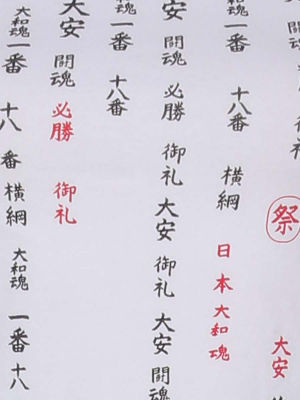 祭 大安
魂 一番 十八番 横綱 日本大和魂
大安 闘魂 必勝 御礼 大安 御礼 大安 闘魂
魂 一番 十八番
大安 闘魂 必勝 御礼
大和魂 一番 十八番 横綱 大和魂 一番 十八